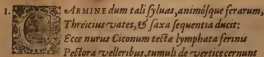 1. CARMINE dum tali syluas, animósque ferarum,
Threicius vates, & saxa sequentia ducit:
Ecce nurus Ciconum tectæ lymphata ferinis
Pectora velleribus, tumuli de vertice cernunt